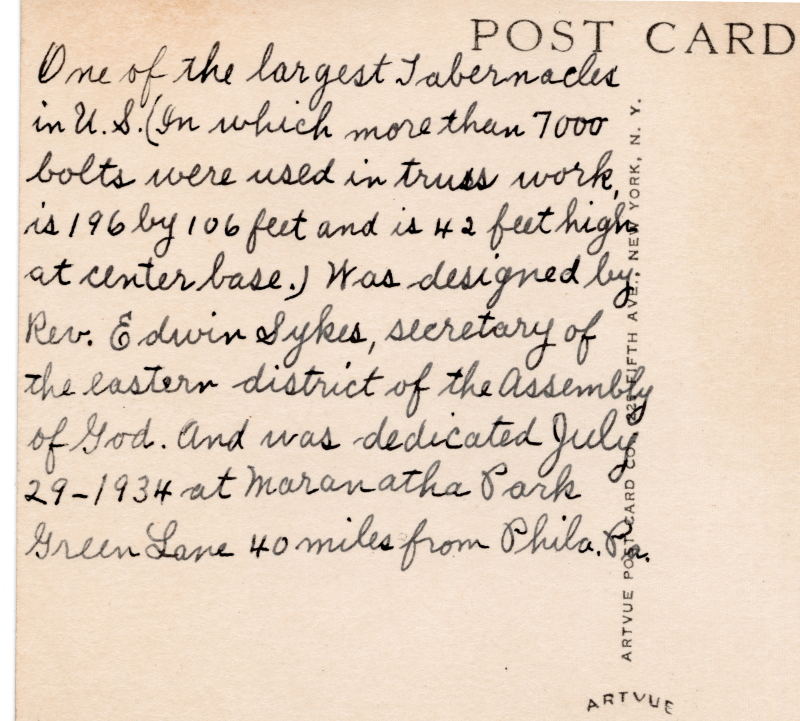 POST CARD
One of the largest Tabernacles
in U.S. (In which more than 7000
bolts were used in truss work,
is 196 by 106 feet and is 42 feet high
at center base.) Was designed by
Rev. Edwin Sykes, secretary of
the eastern district of the Assembly
of God. And was dedicated July
29-1934 at Maranatha Park
Green Lane 40 miles from Phila. Pa.
ARTVUE POST CARD CO., 225 FIFTH AVE., NEW YORK, N. Y.
ARTVUE